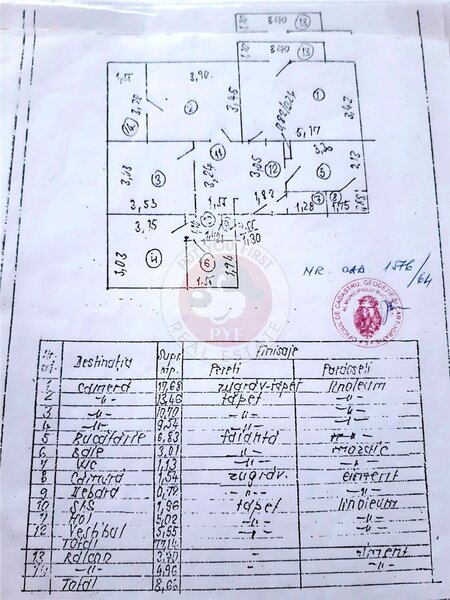 3,70
13
3,70
13
1,55
3,90
3,70
14
2
3,45
1
3,42
5,17
11
3,30
3
3,03
3,24
3,05
12
5
2,13
3,53
1,55
1,82
1,28
7
8
1,75
3,25
1,30
3,03
4
6
1,94
1,55
PUT YOU FIRST
PYF
REAL ESTATE
NR. CAD 1576/64
Destinatia
Supr.
mp.
Finisaje
Pereti
Pardoseli
1 Camera 17,68 zugrav-tapet linoleum
2 -"- 13,46 tapet -"-
3 -"- 10,70 -"- -"-
4 -"- 9,54 -"- -"-
5 Bucatarie 6,83 faianta -"-
6 Baie 3,01 -"- mozaic
7 WC 1,13 -"- -"-
8 Camara 1,54 zugrav. ciment
9 Debara 0,72 -"- -"-
10 SAS 1,96 tapet linoleum
11 Hol 5,02 -"- -"-
12 Vestibul 5,55 -"- -"-
Total
13 Balcon 3,70 - ciment
14 -"- 4,96 - -"-
Total 8,66